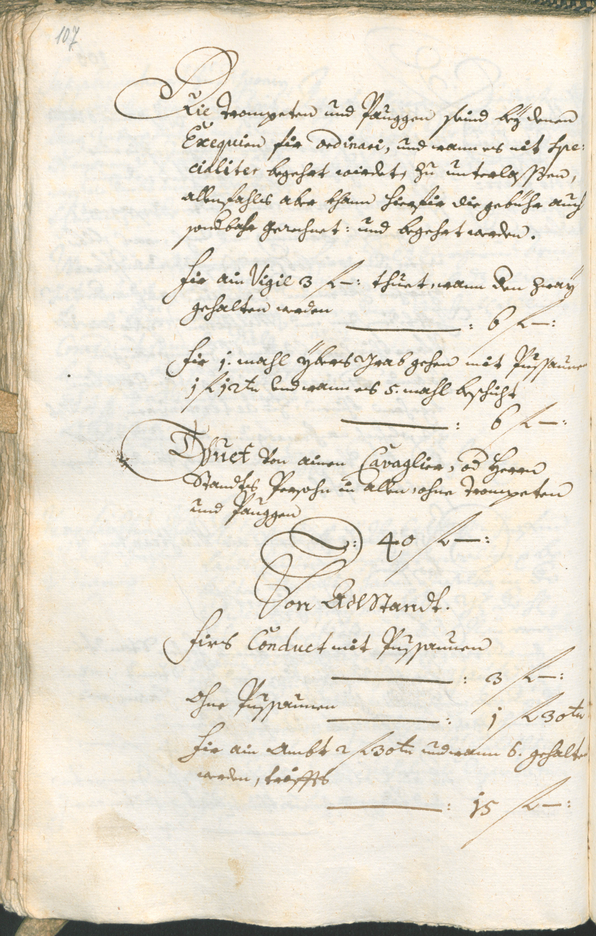 107.
Die Trompeten und Pauggen seind bey denen
Exequien für ordinari, und wann es nit spe-
cialiter begehrt wirdet, zu unterlassen,
allenfahls aber khann hierfür die gebühr auch
gerechnet: und begehrt werden.
Für ain Vigil 3 f —: thuet, wann den zway
gehalten werden
: 6 f —:
Für 1. mahl ybers Grab gehen mit Pusaunen
1 f 12 kr. und wann es 5. mahl beschiht
: 6 f —:
Thuet von ainen Cavaglier, od Herrn
Standts Persohn in allen, ohne Trompeten
und Pauggen
S: 40 f —:
Von Adl Standt.
Fürs Conduct mit Pusaunen
: 3 f —:
Ohne Pusaunen
: 1 f 30 kr.
Für ain Ambt 2 f 30 kr. und wann 6. gehalten
werden, tröffts
: 15 f —: